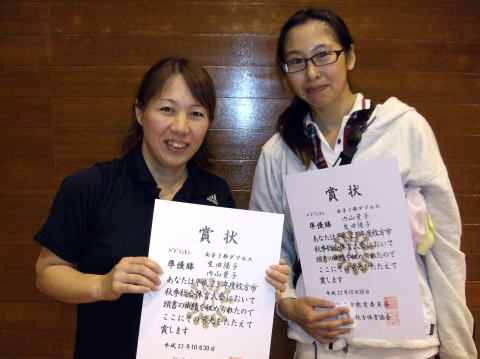 賞状
バドミントン 女子3部ダブルス
準優勝 生田陽子
内山景子
あなたは平成23年度枚方市
秋季総合体育大会において
頭書の成績を収められたので
ここにその栄光をたたえて
賞します
平成23年10月30日
賞状
バドミントン 女子3部ダブルス
内山景子
準優勝 生田陽子
あなたは平成23年度枚方市
秋季総合体育大会において
頭書の成績を収められたので
ここにその栄光をたたえて
賞します
平成23年10月30日
教育委員会
枚方市体育協会